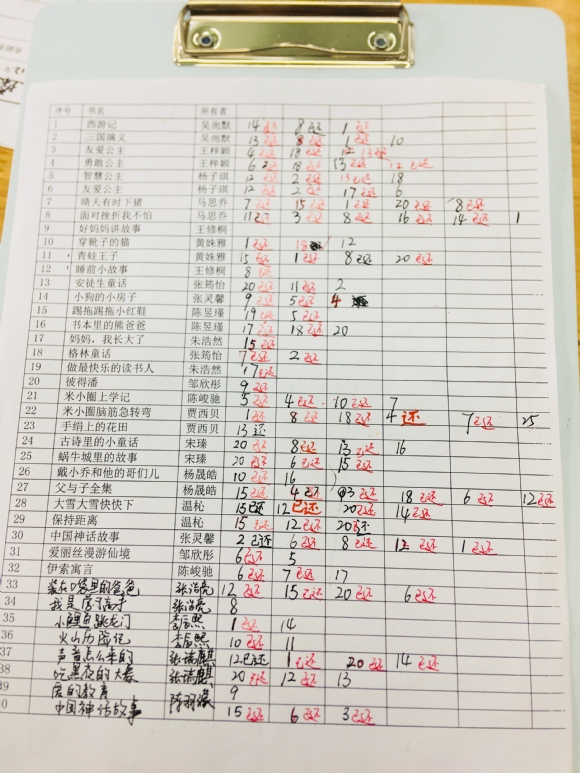 序号 书名 所有者
1 西游记 吴尚默 14 已还 8 已还 1 已还
2 三国演义 吴尚默 13 已还 8 已还 1 已还 10
3 友爱公主 王梓颖 4 已还 18 已还 12 13 已还
4 勇敢公主 王梓颖 6 18 已还 13 已还 12 已还
5 智慧公主 杨子琪 12 已还 2 已还 13 已还 18
6 友爱公主 杨子琪 12 已还 2 已还 17 已还 6
7 晴天有时下猪 马思乔 7 已还 15 已还 1 已还 20 已还 8 已还
8 面对挫折我不怕 马思乔 11 已还 3 已还 8 已还 16 已还 14 已还 1
9 好妈妈讲故事 王修桐
10 穿靴子的猫 黄姝雅 1 已还 18 12
11 青蛙王子 黄姝雅 15 已还 1 已还 8 已还 20 已还
12 睡前小故事 王修桐 8 已还
13 安徒生童话 张筠怡 20 已还 11 已还 2
14 小狗的小房子 张灵馨 9 已还 5 已还 4
15 踢拖踢拖小红鞋 陈昱瑾 19 已还 5 已还
16 书本里的熊爸爸 陈昱瑾 17 已还 18 已还 20
17 妈妈，我长大了 朱浩然 15 已还
18 格林童话 张筠怡 7 已还 2 已还
19 做最快乐的读书人 朱浩然 17 已还
20 彼得潘 邹欣彤 9 已还
21 米小圈上学记 陈峻驰 5 已还 4 已还 10 已还 7
22 米小圈脑筋急转弯 贾西贝 1 已还 8 已还 18 已还 4 还 7 已还 25
23 手绢上的花田 贾西贝 13 还
24 古诗里的小童话 宋瑧 20 已还 8 已还 13 已还 16
25 蜗牛城里的故事 宋瑧 20 已还 6 已还 15 已还
26 戴小乔和他的哥们儿 杨晟皓 10 已还 16
27 父与子全集 杨晟皓 15 已还 4 已还 3 已还 18 已还 6 已还 12 已还
28 大雪大雪快快下 温松 15 已还 12 已还 20 已还 14 已还
29 保持距离 温松 15 已还 12 已还 20 已还
30 中国神话故事 张灵馨 2 已还 6 已还 8 已还 12 已还 1 已还
31 爱丽丝漫游仙境 邹欣彤 6 已还 5
32 伊索寓言 陈峻驰 6 已还 7 已还 17
33 装在口袋里的爸爸 张浩亮 12 已还 15 已还 20 已还 6 已还
34 我是 高手 张浩亮 8
35 小鲤鱼跳龙门 李辰熙 1 已还 14
36 火山历险记 李辰熙 10 已还 11
37 声音怎么来的 张瑞麒 12 已还 1 已还 20 已还 14 已还
38 吃黑夜的大象 张瑞麒 20 已还 12 已还 13
39 爱的教育 陈羽 9
0 中国神话故事 15 已还 6 已还 3 已还